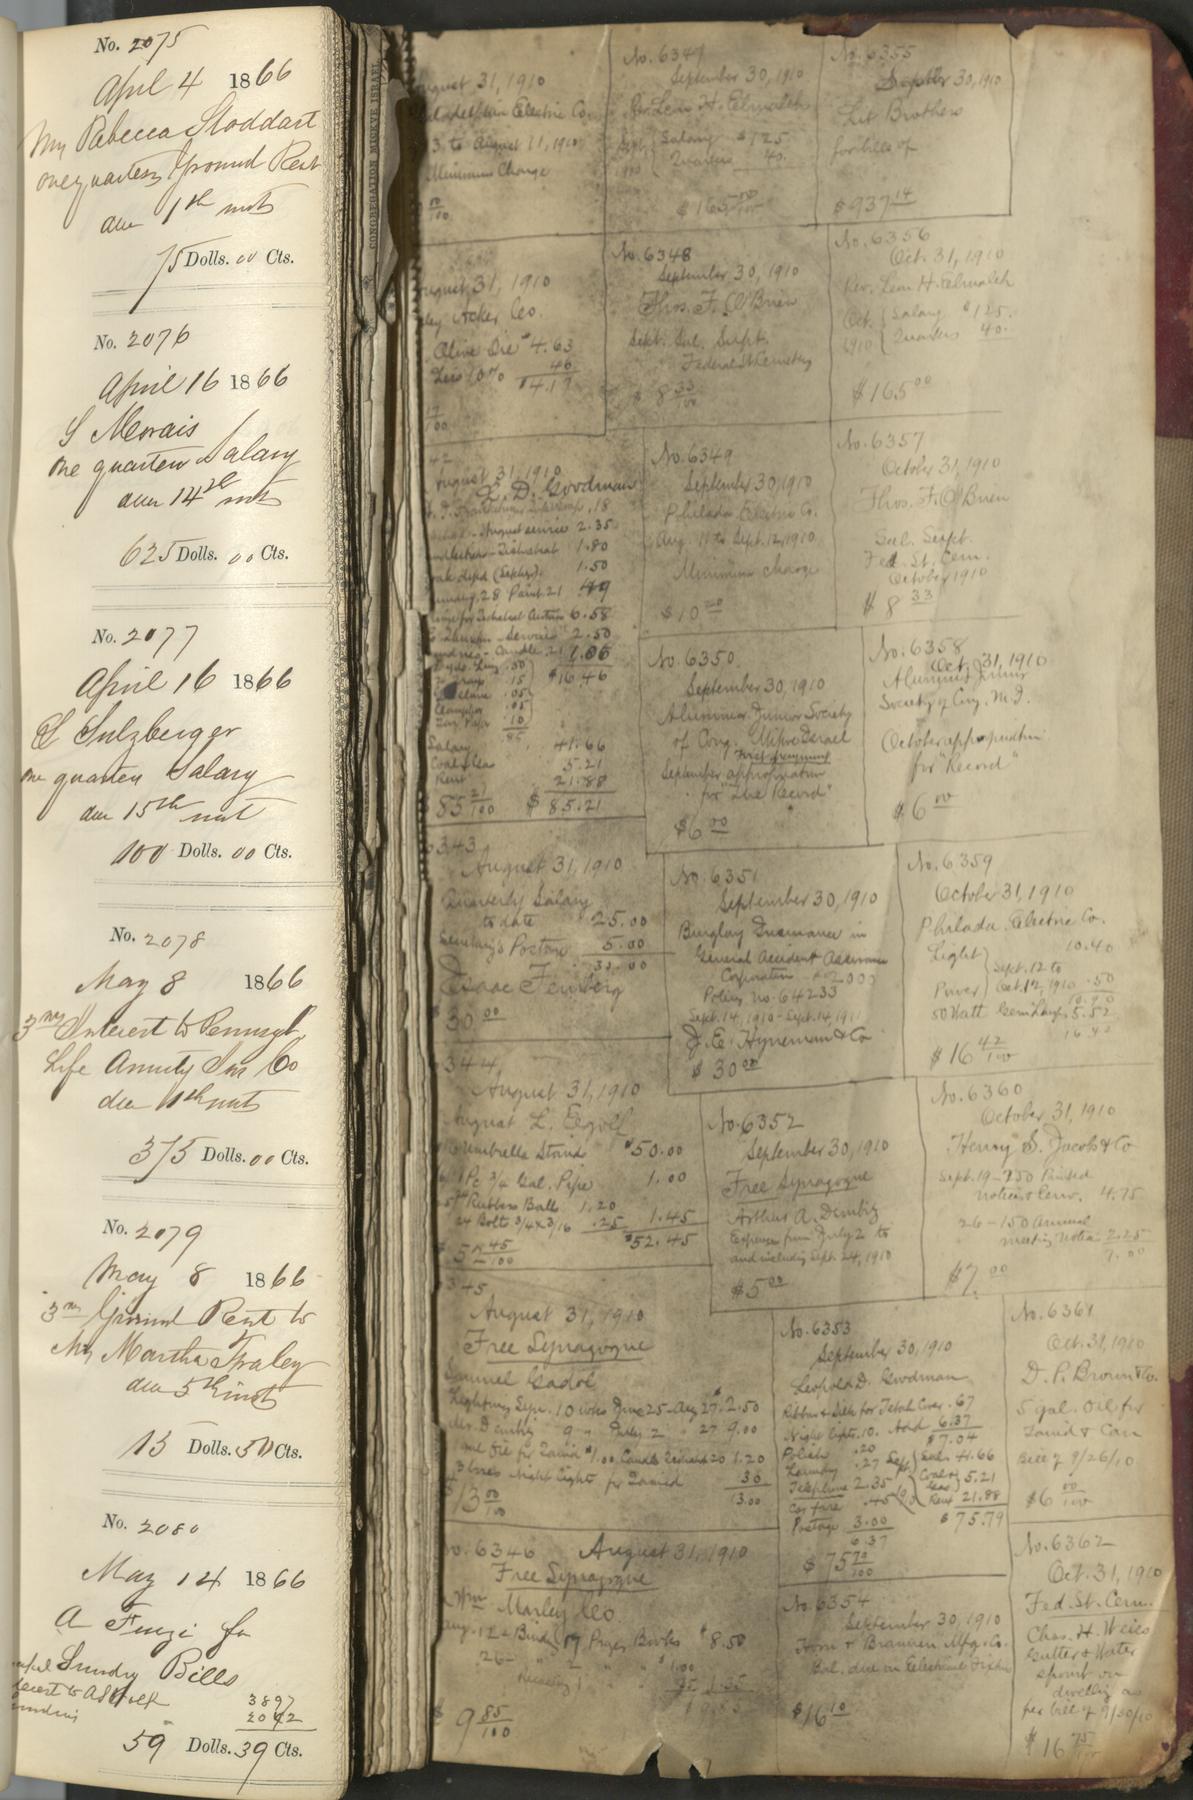 No. 2075
April 4 1866
Mrs Rebecca Stoddart
one quarters Ground Rent
due 1th inst
75 Dolls. 00 Cts.
No. 2076
April 16 1866
S Morais
one quarters Salary
due 14th inst
625 Dolls. 00 Cts.
No. 2077
April 16 1866
L Sulzberger
one quarters Salary
due 15th inst
100 Dolls. 00 Cts.
No. 2078
May 8 1866
3 ms Interest to Pennsyl
Life Annuity Ins Co
due inst
375 Dolls. 00 Cts.
No. 2079
May 8 1866
3 ms Ground Rent to
Mrs Martha Fraley
due 5th inst
13 Dolls. 50 Cts.
No. 2080
May 14 1866
A Finzi for
Sundry Bills
3897
2042
59 Dolls. 39 Cts.
CONGREGATION MICKVE ISRAEL
August 31, 1910
Electric Co.
to August 11, 1910
Minimum Charge
August 31, 1910
Acker Co.
Olive Oil $4.63
Less 10% 46
$4.17
August 31, 1910
L. D. Goodman
August service 2.35
1.80
1.50
6.58
2.50
Candle
$16.46
Salary 41.66
Coal & Gas 5.21
Rent 21.88
$85 21/100 $85.21
6343
August 31, 1910
Quarterly Salary
to date 25.00
Secretary's Postage 5.00
30.00
Isaac Feinberg
$30 00
344
August 31, 1910
August L.
Umbrella Stand $50.00
1 Pc 3/4 Gal. Pipe 1.00
Rubber Balls 1.20
24 Bolts 3/4 x 3/16 .25 1.45
$52.45
$52 45/100
345
August 31, 1910
Free Synagogue
Samuel Gadol
10 wks June 25 - Aug 27. 2.50
July 2 " 27 9.00
1.20
3 boxes Night Lights for Tamid 30
13.00
$13 00/100
No. 6346 August 31, 1910
Free Synagogue
Wm Marley Co.
Aug. 12 - Bind 17 Prayer Books $8.50
$9 85/100
No. 6347
September 30, 1910
Rev. Leon H. Elmaleh
Sept. 1910 { Salary $125.
Quarters 40.
$165 00/100
No. 6348
September 30, 1910
Thos. F. O'Brien
Sept. Sal. Supt.
Federal St. Cemetery
$8 33/100
No. 6349
September 30, 1910
Philada. Electric Co.
Aug. 11 to Sept. 12, 1910
Minimum charge
$10
No. 6350
September 30, 1910
Alumni & Junior Society
of Cong. Mikve Israel
First payment
September appropriation
for "The Record"
$6 00
No. 6351
September 30, 1910
Burglary Insurance in
General Accident Assurance
Corporation $2000
Policy no. 64233
Sept. 14, 1910 - Sept. 14, 1911
J. E. Hyneman & Co
$30 00
No. 6352
September 30, 1910
Free Synagogue
Arthur A. Dembitz
Expenses from July 2 to
and including Sept. 24, 1910
$5 00
No. 6353
September 30, 1910
Leopold D. Goodman
Ribbon & Silk for Tebah Cover .67
Night Lights .10. Add 6.37
$7.04
Polish .20
Laundry .27
Telephone 2.35
Car fare .45
Postage 3.00
6.37
Sept. Sal. 41.66
Coal & Gas 5.21
Rent 21.88
$75.79
$75 79/100
No. 6354
September 30, 1910
Horn & Brannen Mfg. Co.
Bal. due on Electrical Fixtures
$16 10
No. 6355
Septbr 30, 1910
Lit Brothers
for bills of
$937 14
No. 6356
Oct. 31, 1910
Rev. Leon H. Elmaleh
Oct. 1910 { Salary $125.
Quarters 40.
$165 00
No. 6357
October 31, 1910
Thos. F. O'Brien
Sal. Supt.
Fed. St. Cem.
October 1910
$8 33
No. 6358
Oct. 31, 1910
Alumni & Junior
Society of Cong. M. I.
October appropriation
for "Record"
$6 00
No. 6359
October 31, 1910
Philada. Electric Co.
Light 10.40
Sept. 12 to
Power Oct. 12, 1910 .50
10.90
50 Watt Gem Lamps 5.52
16.42
$16 42/100
No. 6360
October 31, 1910
Henry S. Jacobs & Co
Sept. 19 - 750 Printed
notices & Env. 4.75
26 - 150 Annual
meeting Notices 2.25
7.00
$7 00
No. 6361
Oct. 31, 1910
D. P. Brown & Co.
5 gal. Oil for
Tamid & Can
Bill of 9/26/10
$6 00/100
No. 6362
Oct. 31, 1910
Fed. St. Cem.
Chas. H. Weiss
Gutter & Water
spout on
dwelling as
per bill of 9/30/10
$16 75/100